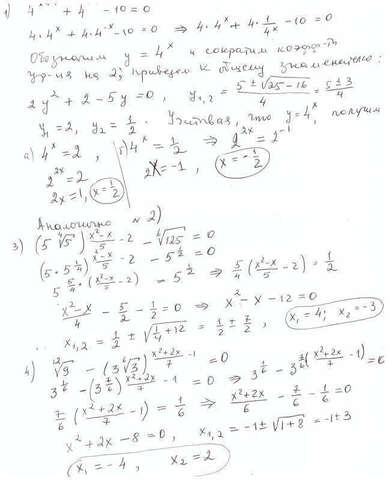 1) 4^{x+1} + 4^{1-x} - 10 = 0
4·4^x + 4·4^{-x} - 10 = 0 ⇒ 4·4^x + 4·\frac{1}{4^x} - 10 = 0
Обозначим y = 4^x и сократим коэф-ты
ур-ия на 2; приведем к общему знаменателю:
2y² + 2 - 5y = 0, y_{1,2} = \frac{5 ± √25-16}{4} = \frac{5 ± 3}{4}
y_1 = 2, y_2 = \frac{1}{2}. Учитывая, что y = 4^x, получим
а) 4^x = 2, б) 4^x = \frac{1}{2} ⇒ 2^{2x} = 2^{-1}
2^{2x} = 2 2x = -1, x = -\frac{1}{2}
2x = 1, x = \frac{1}{2}
Аналогично №2)
3) (5\sqrt[4]{5})^{\frac{x²-x}{5} - 2} - \sqrt[6]{125} = 0
(5·5^{\frac{1}{4}})^{\frac{x²-x}{5} - 2} - 5^{\frac{1}{2}} = 0
5^{\frac{5}{4}·(\frac{x²-x}{5} - 2)} - 5^{\frac{1}{2}} ⇒ \frac{5}{4}(\frac{x²-x}{5} - 2) = \frac{1}{2}
\frac{x²-x}{4} - \frac{5}{2} - \frac{1}{2} = 0 ⇒ x² - x - 12 = 0
x_{1,2} = \frac{1}{2} ± \sqrt{\frac{1}{4} + 12} = \frac{1}{2} ± \frac{7}{2}, x_1 = 4; x_2 = -3
4) \sqrt[12]{9} - (3\sqrt[6]{3})^{\frac{x²+2x}{7} - 1} = 0
3^{\frac{1}{6}} - (3^{\frac{7}{6}})^{\frac{x²+2x}{7} - 1} = 0 ⇒ 3^{\frac{1}{6}} - 3^{\frac{7}{6}(\frac{x²+2x}{7} - 1)} = 0
\frac{7}{6}(\frac{x²+2x}{7} - 1) = \frac{1}{6} ⇒ \frac{x²+2x}{6} - \frac{7}{6} - \frac{1}{6} = 0
x² + 2x - 8 = 0, x_{1,2} = -1 ± √1+8 = -1 ± 3
x_1 = -4, x_2 = 2